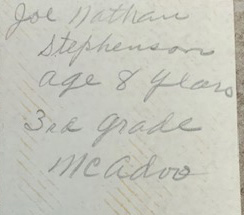 Joe Nathan
Stephenson
age 8 years
3rd grade
McAdoo